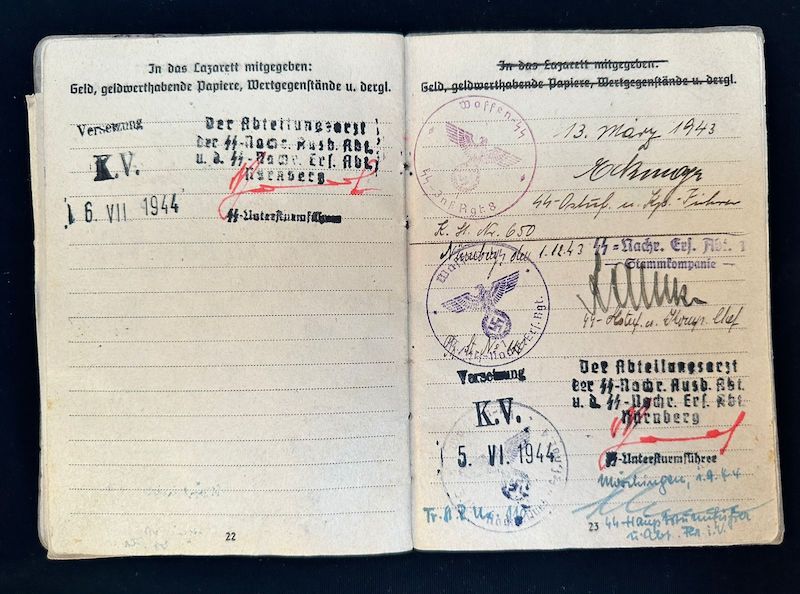 In das Lazarett mitgegeben:
Geld, geldwerthabende Papiere, Wertgegenstände u. dergl.
Versetzung
K.V.
16. VII 1944
Der Abteilungsarzt
der SS-Nachr. Ausb. Abt.
u. d. SS-Nachr. Ers. Abt.
Nürnberg
SS-Untersturmführer
22
In das Lazarett mitgegeben:
Geld, geldwerthabende Papiere, Wertgegenstände u. dergl.
Waffen-SS
SS-Inf. Rgt. 8
13. März 1943
SS-Ostuf. u. Kp.-Führer
K. St. Nr. 650
Nürnberg, den 1.12.43
SS-Nachr. Ers. Abt. 1
Stammkompanie
SS-Hstuf. u. Komp. Chef
Versetzung
K.V.
5. VI. 1944
Der Abteilungsarzt
der SS-Nachr. Ausb. Abt.
u. d. SS-Nachr. Ers. Abt.
Nürnberg
SS-Untersturmführer
23
SS-Hauptsturmführer